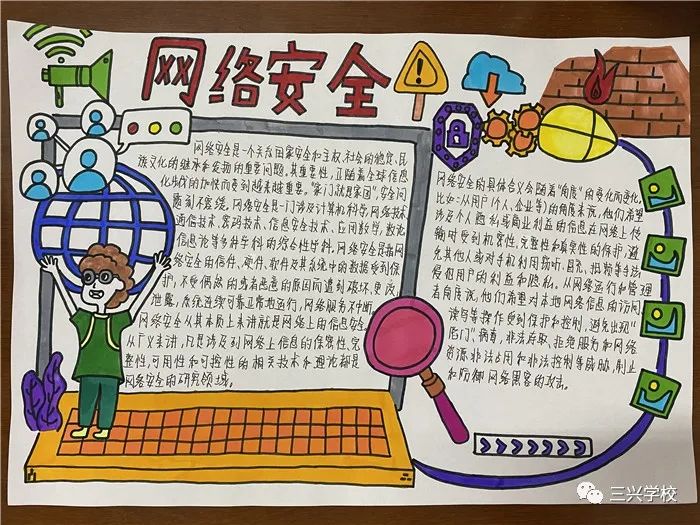 网络安全
网络安全是一个关系国家安全和主权、社会的稳定、民
族文化的继承和发扬的重要问题。其重要性，正随着全球信息
化步伐的加快而变到越来越重要。"家门就是国门"，安全问
题刻不容缓。网络安全是一门涉及计算机科学、网络技术
通信技术、密码技术、信息安全技术、应用数学、数论
信息论等多种学科的综合性学科。网络安全是指网
络安全的信件、硬件、软件及其系统中的数据受到保
护，不受偶然的或者恶意的原因而遭到破坏、更改
泄露，系统连续可靠正常地运行，网络服务不中断。
网络安全从其本质上来讲就是网络上的信息安全。
从广义来讲，凡是涉及到网络上信息的保密性、完
整性、可用性和可控性的相关技术和理论都是
网络安全的研究领域。
网络安全的具体含义会随着"角度"的变化而变化。
比如：从用户（个人、企业等）的角度来说，他们希望
涉及个人隐私或商业利益的信息在网络上传
输时受到机密性、完整性和真实性的保护，避
免其他人或对手利用窃听、冒充、抵赖等手段
侵犯用户的利益和隐私。从网络运行和管理
者角度说，他们希望对本地网络信息的访问、
读写等操作受到保护和控制，避免出现"
后门"、病毒、非法存取、拒绝服务和网络
资源非法占用和非法控制等威胁，制止
和防御网络黑客的攻击。
三兴学校